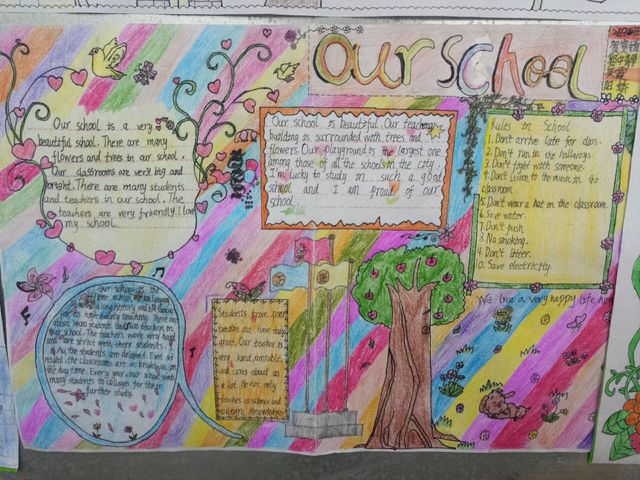 OUR SCHOOL
Our school is a very
beautiful school. There are many
flowers and trees in our school.
Our classrooms are very big and
bright. There are many students
and teachers in our school. The
teachers are very friendly. I love
my school.
Our school is beautiful. Our teaching
building is surrounded with trees and
flowers. Our playground is the largest one
among those of all the schools in the city.
I'm lucky to study in such a good
school and I am proud of our
school.
Rules in School
1. Don't arrive late for class.
2. Don't run in the hallways.
3. Don't fight with someone.
4. Don't listen to the music in the
classroom.
5. Don't wear a hat in the classroom.
6. Save water.
7. Don't push.
8. No smoking.
9. Don't litter.
10. Save electricity.
We live a very happy life here
Our school is the
school
long history and it is famous
for its high quality teaching. There are
about students teaching in
our school. The teachers work very hard
and are strict with their students.
All the students are diligent. Even at
night the classrooms are as bright as in
the day time. Every year our school sends
many students to colleges for their
further study.
Students from
have study
great. Our teacher is
very kind, amiable,
and cares about us
a lot. He not only
teaches us science and
knowledge